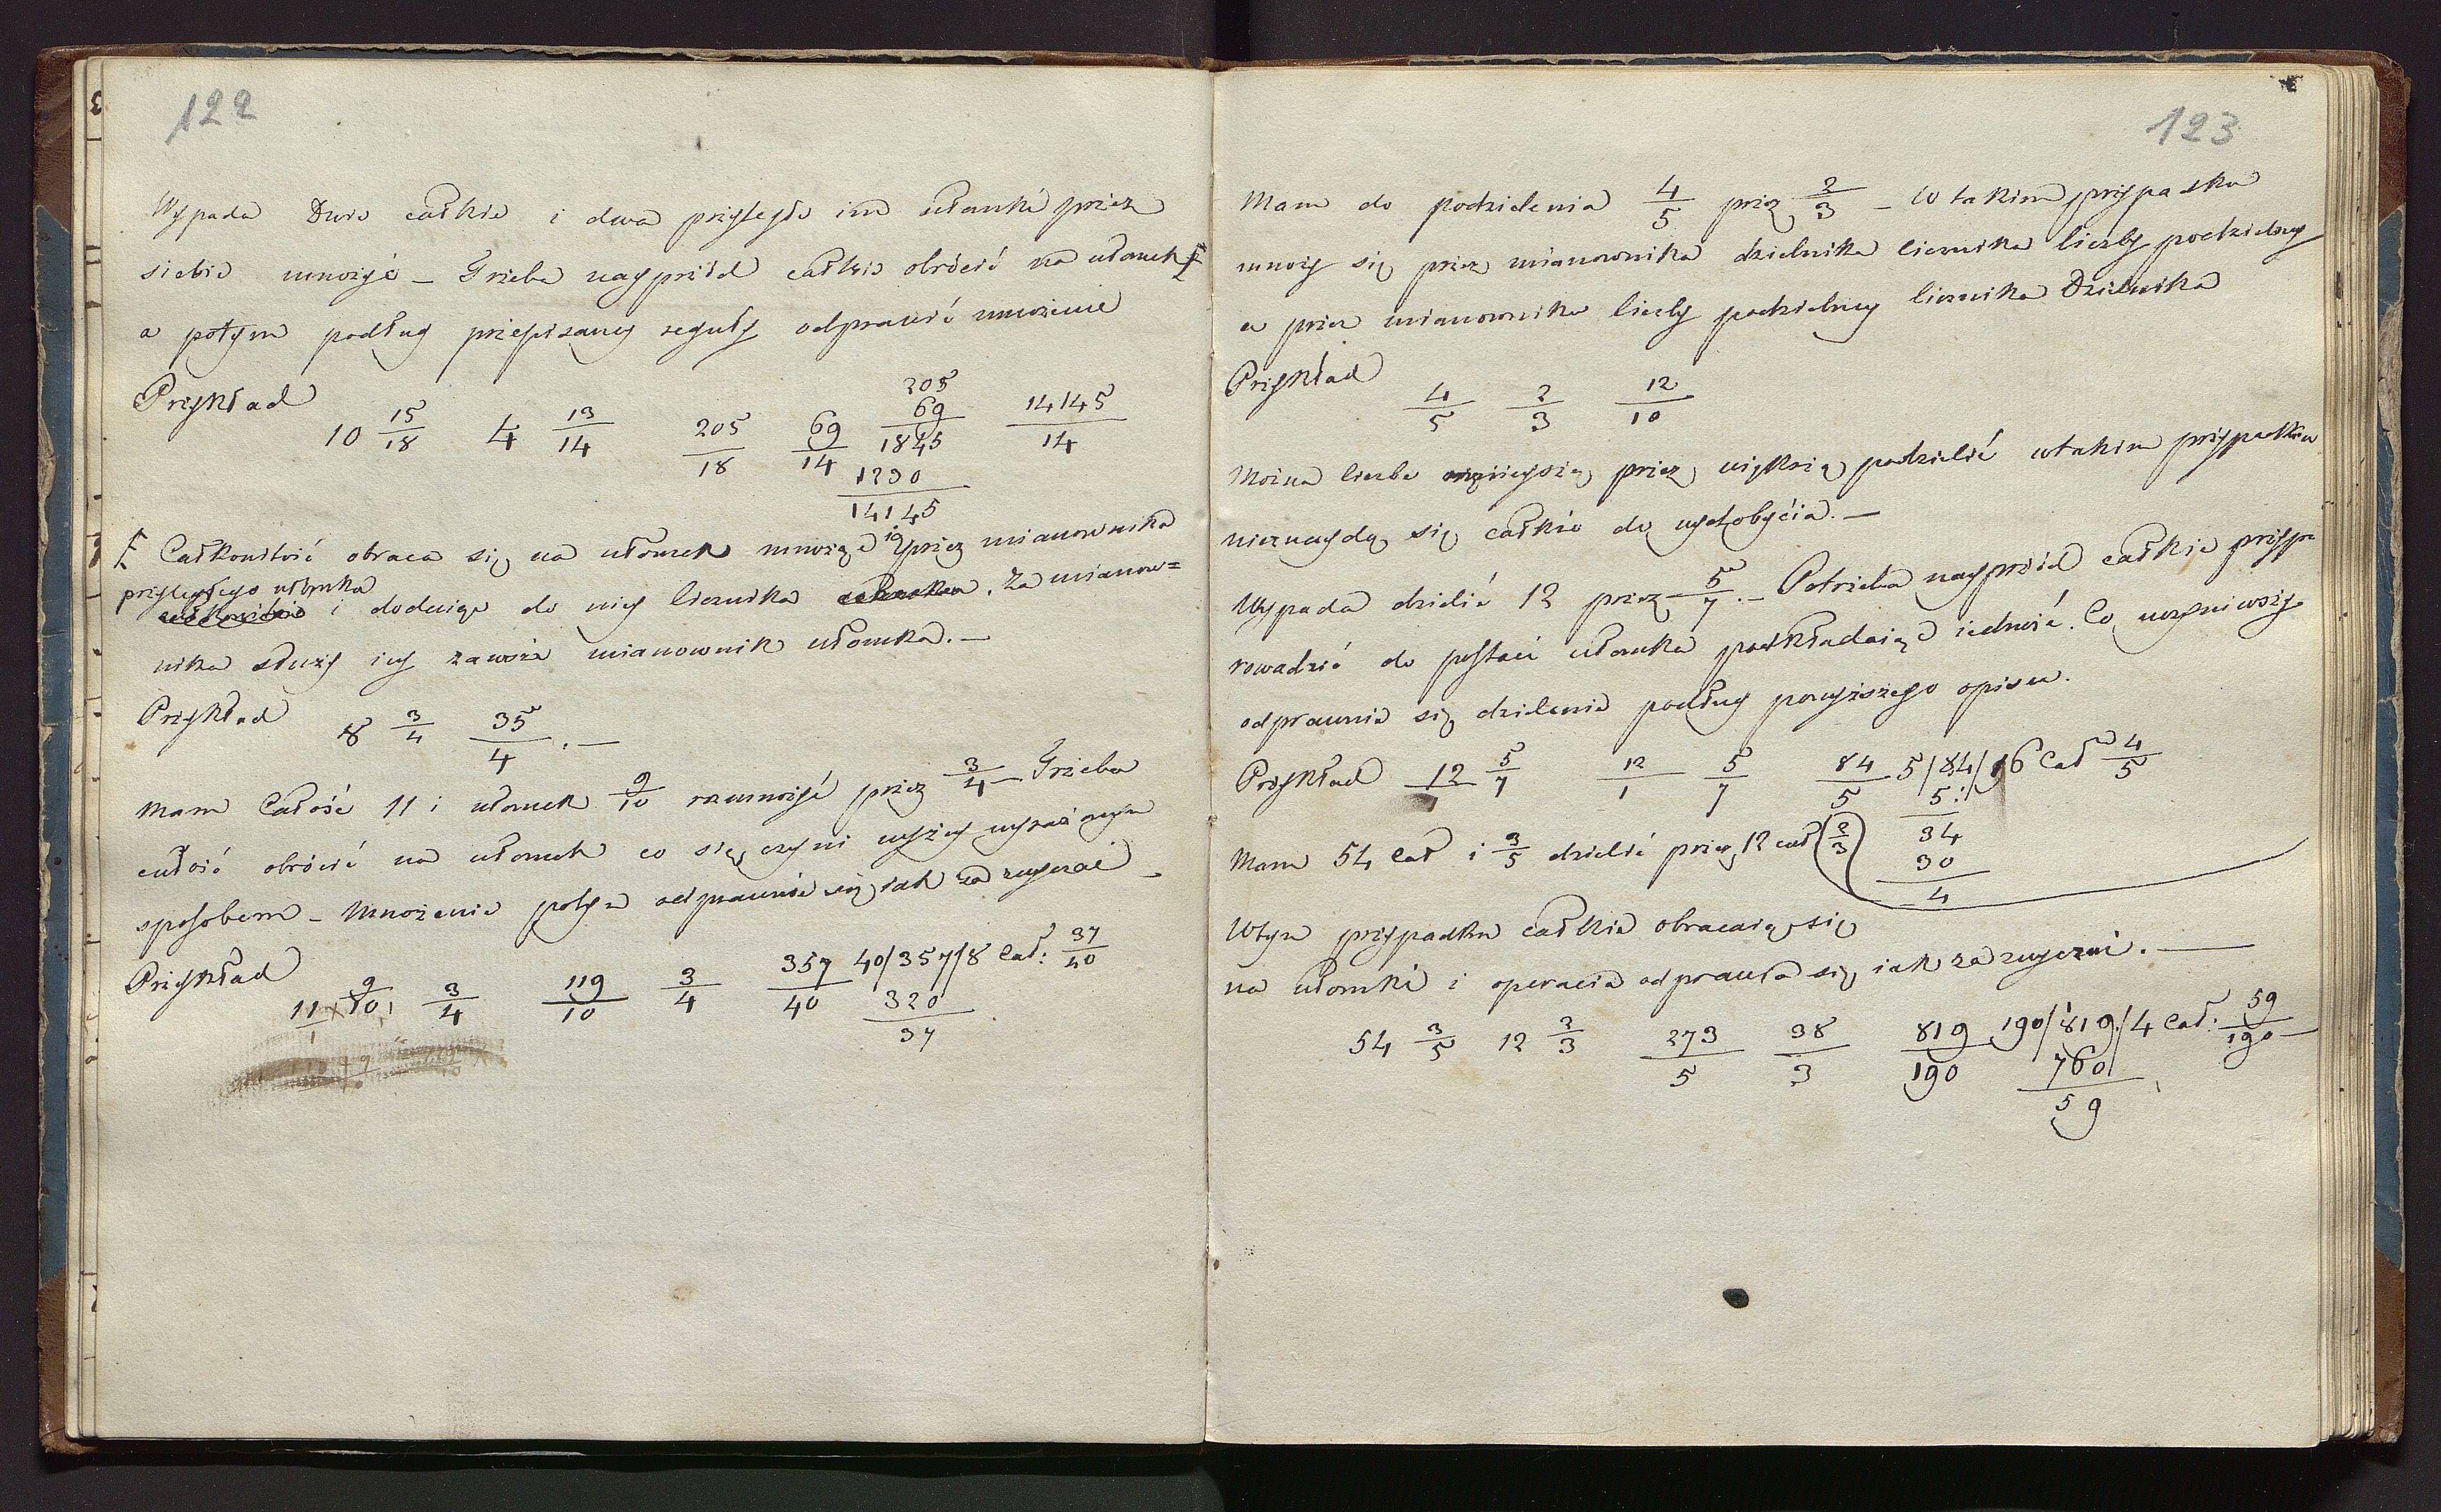 122
Wypada Dwie całkie i dwa przyległe im ułamki przez
siebie mnożyć – Trzeba nayprzód całkie obrócić na ułomek
a potym podług przepisaney reguły odprawić mnożenie
Przykład 10 15/18 4 13/14 205/18 69/14 205
69
1845
1230
14145 14145/14
Całkowitość obraca się na ułomek mnożąc ią przez mianownika
przyległego ułomka
i dodaiąc do niey licznika . Za mianow=
nika służy iey zawsze mianownik ułomka. –
Przykład 8 3/4 35/4 . –
Mam Całość 11 i ułomek 9/10 rozmnożyć przez 3/4 – Trzeba
całość obrócić na ułomek co się czyni wyżey wyrażonym
sposobem – Mnożenie potym odprawuie się iak zazwyczai –
Przykład 11 9/10 3/4 119/10 3/4 357/40 40/357/8 Cał: 37/40
320
37
123
Mam do podzielenia 4/5 przez 2/3 – W takim przypadku
mnoży się przez mianownika dzielnika licznika liczby podzielney
a przez mianownika liczby podzielney licznika Dzielnika
Przykład 4/5 2/3 12/10
Można liczbe mnieyszą przez większą podzielić w takim przypadku
nieznaydą się całkie do wydobycia. –
Wypada dzielić 12 przez 5/7. – Potrzeba nayprzód całkie przyp
rowadzić do postaci ułomka podkładaiąc iedność. Co uczyniwszy
odprawuie się dzielenie podług powyższego opisu.
Przykład 12 5/7 12/1 5/7 84/5 5/84/16 Cał 4/5
5:
34
30
4
Mam 54 Cał i 3/5 dzielić przez 12 cał 2/3
W tym przypadku całkie obracaią się
na ułomki i operacia odprawia się iak zazwyczai. –
54 3/5 12 2/3 273/5 38/3 819/190 190/819/4 Cał: 59/190
760
59